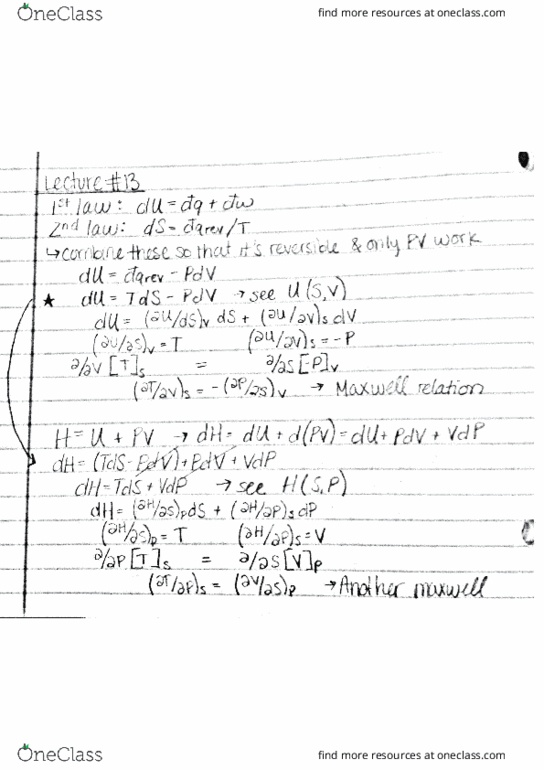 OneClass
find more resources at oneclass.com
Lecture #13
1st law: dU = đq + đw
2nd law: dS = đqrev/T
↳ combine these so that it's reversible & only PV work
dU = đqrev - PdV
★ dU = TdS - PdV → see U(S,V)
dU = (∂U/dS)v dS + (∂U/∂V)s dV
(∂U/∂S)v = T (∂U/∂V)s = -P
∂/∂V [T]s = ∂/∂S[-P]v
(∂T/∂V)s = -(∂P/∂S)v → Maxwell relation
H = U + PV → dH = dU + d(PV) = dU + PdV + VdP
dH = (TdS - PdV) + PdV + VdP
dH = TdS + VdP → see H(S,P)
dH = (∂H/∂S)p dS + (∂H/∂P)s dP
(∂H/∂S)p = T (∂H/∂P)s = V
∂/∂P [T]s = ∂/∂S [V]p
(∂T/∂P)s = (∂V/∂S)p → Another maxwell
OneClass
find more resources at oneclass.com